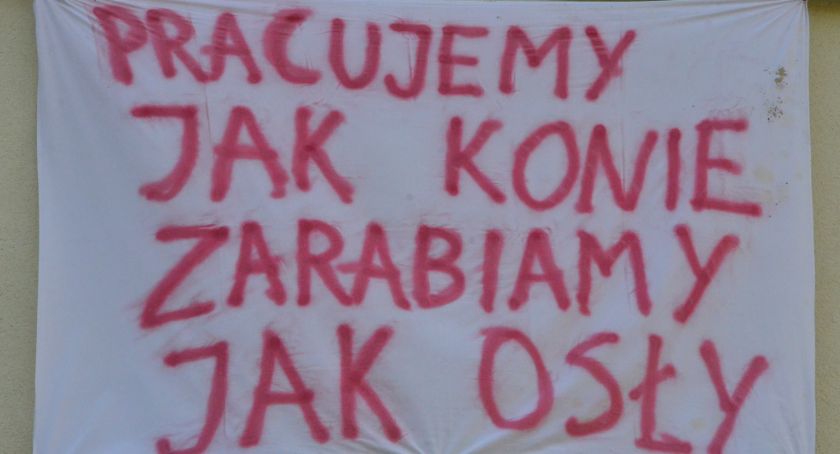 PRACUJEMY
JAK KONIE
ZARABIAMY
JAK OSŁY